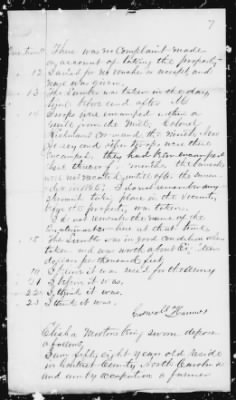 7
Question There was no Complaint made
on account of taking the property
12 I asked for no voucher or receipt, and
none was given,
13 The lumber was taken in the day
time before and after M
14 Troops were encamped within a
mile from the Mill, Colonel
Richmond Command the Ninth New
Jersey and other troops were there
encamped. they had been encamped
there three or months the lands
were not vacated until after the surren-
der in 1865; I do not remember any
take place in the vicinity,
the property was taken.
I do not remember the name of the
Quartermaster there at that time.
15 The lumber was in good condition when
taken and was worth about $ ten
dollars per thousand feet,
19 I believe it was used for the Army
21 I believe it was.
22 I think it was.
23 I think it was.
Elisha Morton being sworn depose
as follows,
I am fifty eight years old reside
in County, North Carolina
and my occupation a farmer